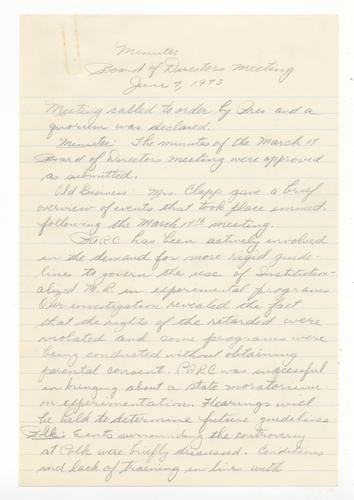 Minutes
Board of Directors Meeting
June 7, 1973
Meeting called to order by Pres and a
quorum was declared.
Minutes: The minutes of the March 17
Board of Directors meeting were approved
as submitted.
Old Business: Mrs. Clapp gave a brief
overview of events that took place immed.
following the March 17th meeting.
PARC has been actively involved
in the demand for more rigid guide-
lines to govern the use of Institution-
alyzd M.R. in experimental programs
Our investigation revealed the fact
that the rights of the retarded were
violated and some programs were
being conducted without obtaining
parental consent. PARC was successful
in bringing about a state moratorium
on experimentation. Hearings will
be held to determine future guidelines
Polk: Events surrounding the controversy
at Polk were briefly discussed. Conditions
and lack of training in line with